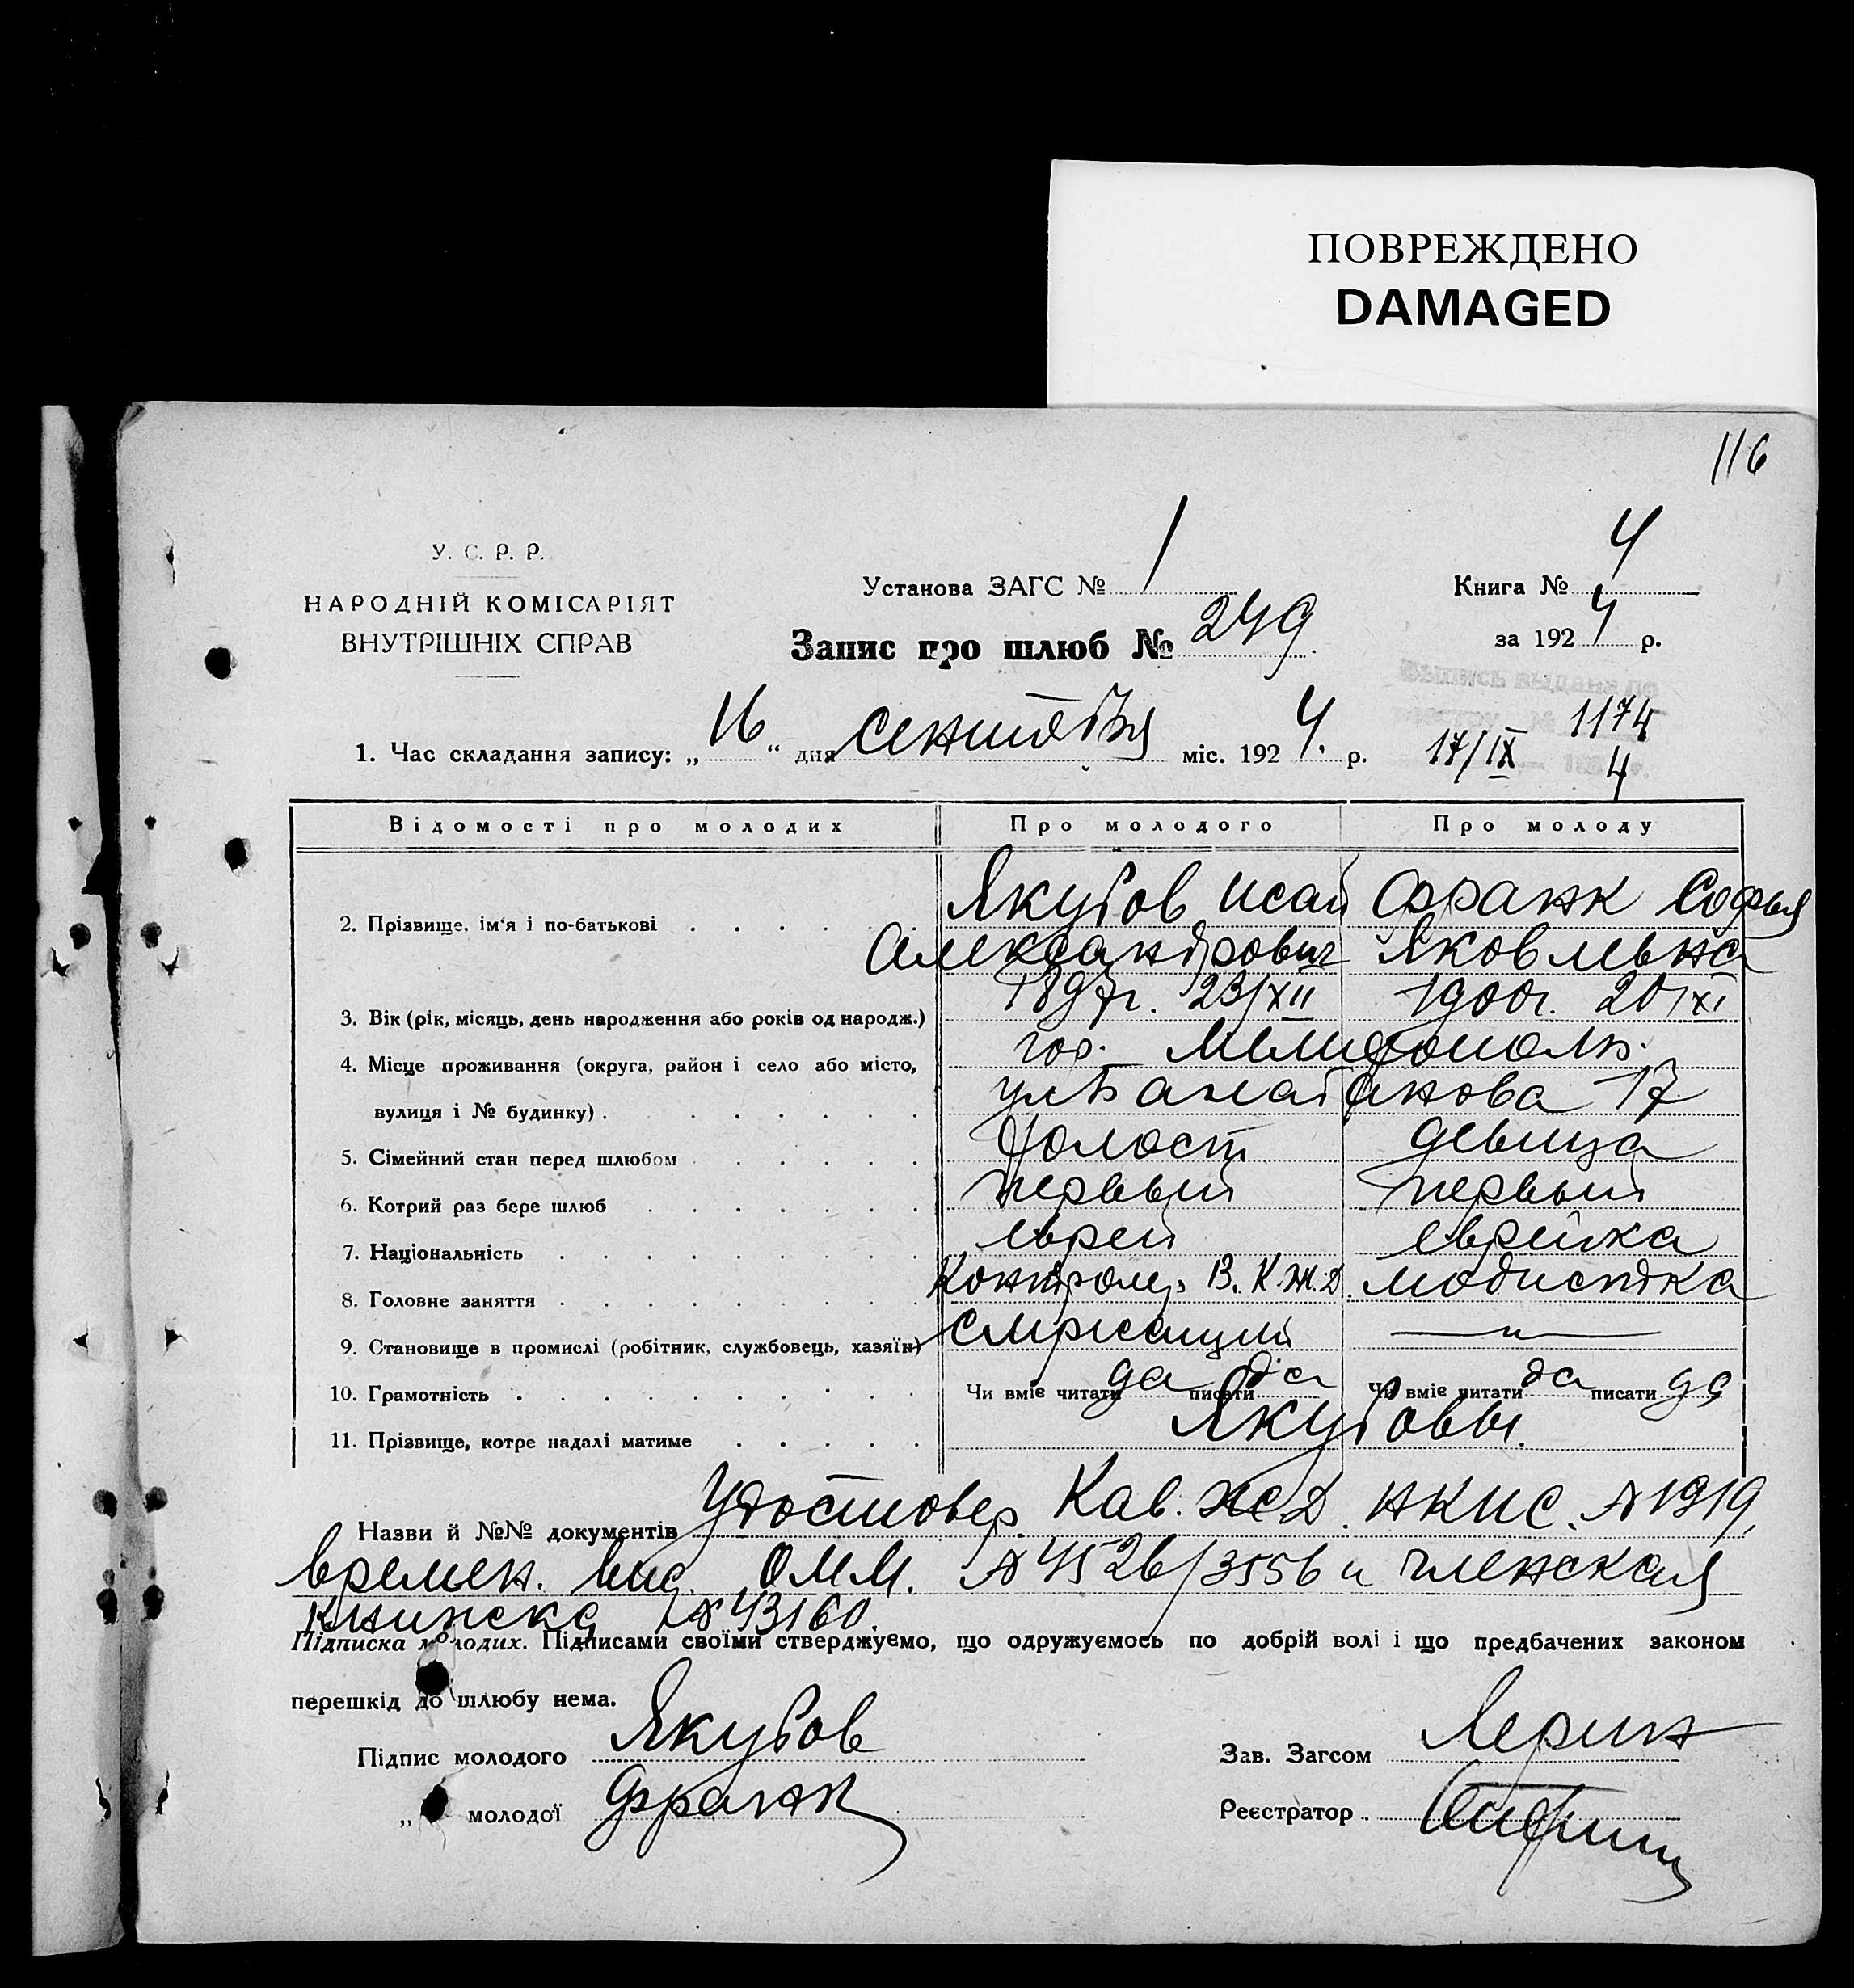 ПОВРЕЖДЕНО
DAMAGED
116
У. С. Р. Р.
НАРОДНІЙ КОМІСАРІЯТ
ВНУТРІШНІХ СПРАВ
Установа ЗАГС № 1
Запис про шлюб № 249
Книга № 4
за 1924 р.
Выпись выдана по
реестру № 1174
17/IX 4
1. Час складання запису: „16“ дня сентября міс. 1924. р.
Відомості про молодих Про молодого Про молоду
2. Прізвище, ім'я і по-батькові Якубов Исай Франк Софья
Александрович Яковлевна
3. Вік (рік, місяць, день народження або років од народж.) 1897г. 23/XII 1900г. 20/XI
4. Місце проживання (округа, район і село або місто, гор. Мелитополь.
вулиця і № будинку) ул 17
5. Сімейний стан перед шлюбом холост девица
6. Котрий раз бере шлюб первый первый
7. Національність еврей еврейка
8. Головне заняття Контрол. В. К. Ж. Д. модистка
9. Становище в промислі (робітник, службовець, хазяїн) Служащий — " —
10. Грамотність Чи вміє читати да писати да Чи вміє читати да писати да
11. Прізвище, котре надалі матиме Якубовы.
Назви й №№ документів Удостовер. Кав. ЖД. НКПС. № 1919,
времен. вид. О.М.М. № 4526/3556 и членская
книжка № 43160.
Підписка молодих. Підписами своїми стверджуємо, що одружуємось по добрій волі і що предбачених законом
перешкід до шлюбу нема.
Підпис молодого Якубов
Зав. Загсом
„ молодої Франк
Реєстратор